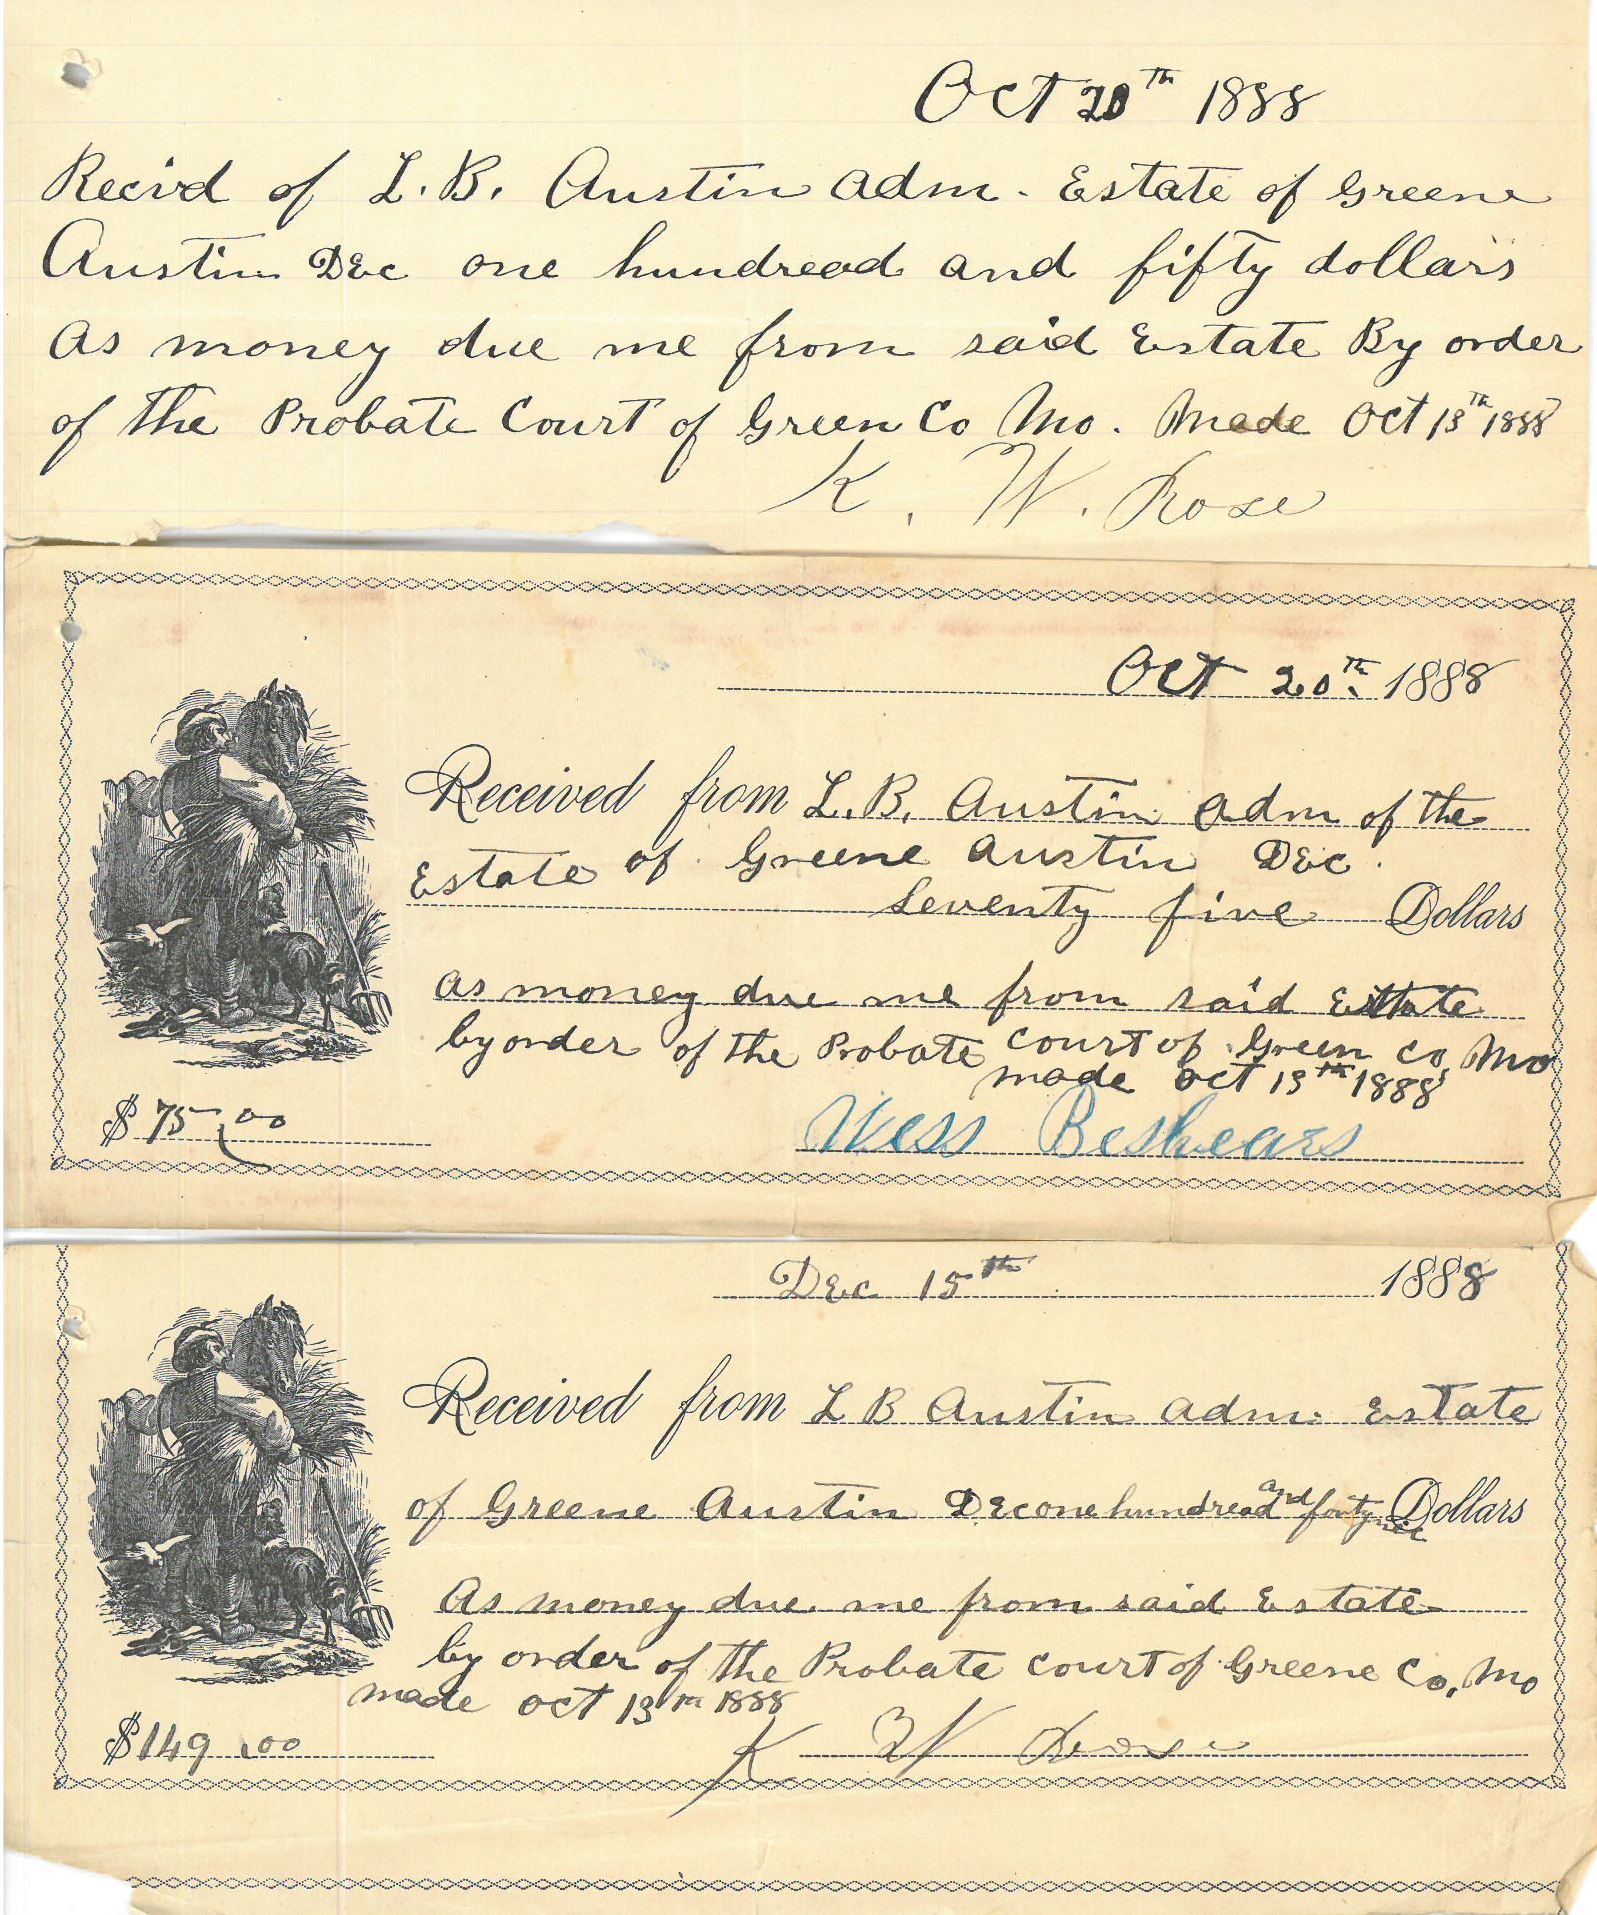 Oct 20th 1888
Recivd of L. B. Austin adm. Estate of Greene
Austin Dec one hundread and fifty dollars
as money due me from said Estate By order
of the Probate Court of Green Co Mo. Made Oct 13th 1888
K. W. Rose
Oct 20th 1888
Received from L. B. Austin adm of the
Estate of Greene Austin Dec.
Seventy five Dollars
as money due me from said Estate
by order of the Probate Court of Green Co, Mo
made Oct 13th 1888
$ 75.00
Wess Beshears
Dec 15th 1888
Received from L B Austin adm. Estate
of Greene Austin Dec one hundread and forty nine Dollars
As money due me from said Estate
by order of the Probate Court of Greene Co, Mo
made Oct 13th 1888
$149.00
K W Rose